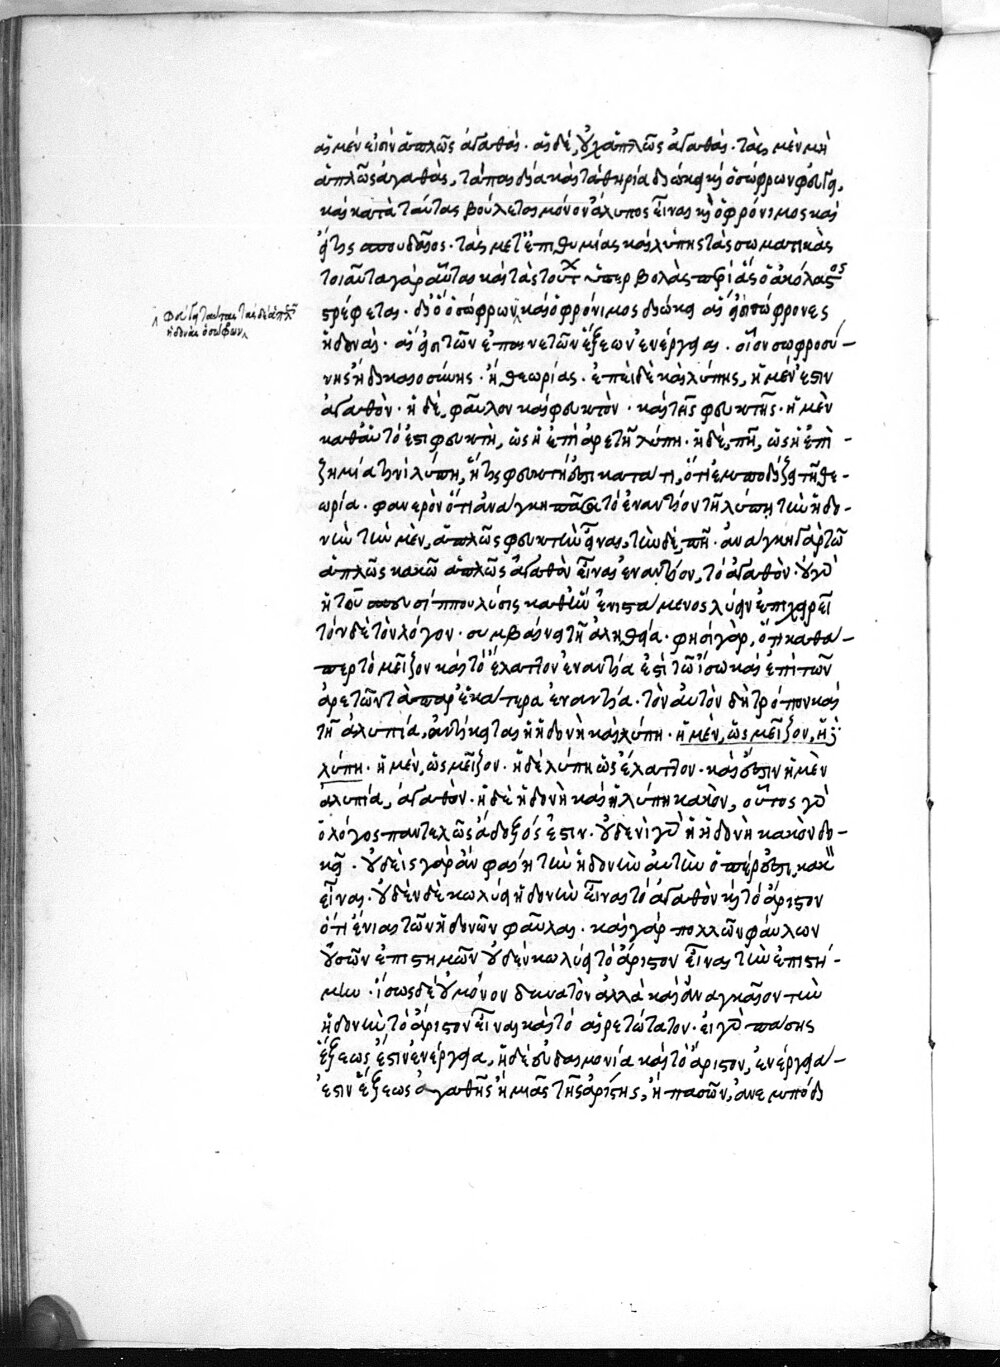 αἱ μέν εἰσιν ἁπλῶς ἀγαθαί· αἱ δέ, οὐχ ἁπλῶς ἀγαθαί. τὰς μὲν μὴ
ἁπλῶς ἀγαθάς, τὰ παιδία καὶ τὰ θηρία διώκει καὶ ὁ σώφρων φεύγει,
καὶ κατὰ ταύτας βούλεται μόνον ἄλυπος εἶναι καὶ ὁ φρόνιμος καὶ
ὅστις σπουδαῖος· τὰς μετ' ἐπιθυμίας καὶ λύπης τὰς σωματικὰς
τοιαῦται γὰρ αὗται καὶ τὰς τούτων ὑπερβολὰς περὶ ἃς ὁ ἀκόλαστος
στρέφεται. διὸ ὁ σώφρων καὶ ὁ φρόνιμος διώκει αἵ εἰσι σώφρονες
φεύγει ταύτας τὰς δὲ ἁπλῶς
ἡδονὰς ὁ σώφρων
ἡδοναί. αἵ εἰσι τῶν ἐπαινετῶν ἕξεων ἐνέργειαι. οἷον σωφροσύ-
νης ἢ δικαιοσύνης· ἢ θεωρίας. ἐπεὶ δὲ καὶ λύπης, ἡ μέν ἐστιν
ἀγαθὸν· ἡ δέ, φαῦλον καὶ φευκτὸν· καὶ τῆς φευκτῆς· ἡ μὲν
καθ' αὑτό ἐστι φευκτὴ, ὡς ἡ ἐπὶ ἀρετῇ λύπη. ἡ δέ, πῇ, ὡς ἡ ἐπὶ
ζημίᾳ τινὶ λύπη, ἥτις φευκτή ἐστι κατά τι, ὅτι ἐμποδίζει τῇ θε-
ωρίᾳ. φανερὸν ὅτι ἀνάγκη πᾶσα τὸ ἐναντίον τῇ λύπῃ τὴν ἡδο-
νὴν τὴν μὲν, ἁπλῶς φευκτὴν εἶναι, τὴν δέ, πῇ. ἀνάγκη γὰρ τῷ
ἁπλῶς κακῷ ἁπλῶς ἀγαθὸν εἶναι ἐναντίον, τὸ ἀγαθὸν. οὐ γὰρ
ἡ τοῦ σπευσίππου λύσις καθ' ἣν ἐνιστάμενος λύειν ἐπιχειρεῖ
τόνδε τὸν λόγον. συμβαίνει τῇ ἀληθείᾳ. φησὶ γὰρ, ὅτι καθά-
περ τὸ μεῖζον καὶ τὸ ἔλαττον ἐναντία ἐστὶ τῷ ἴσῳ καὶ ἐπὶ τῶν
ἀρετῶν τὰ παρ' ἑκάτερα ἐναντία. τὸν αὐτὸν δὴ τρόπον καὶ
τῇ ἀλυπίᾳ, ἀντίκειται ἡ ἡδονὴ καὶ λύπη. ἡ μὲν, ὡς μεῖζον, ἡ δὲ
λύπη· ἡ μὲν, ὡς μεῖζον· ἡ δὲ λύπη ὡς ἔλαττον. καὶ ἔστιν ἡ μὲν
ἀλυπία, ἀγαθὸν· ἡ δὲ ἡδονὴ καὶ ἡ λύπη κακὸν, οὗτος γὰρ
ὁ λόγος παντελῶς ἄδοξός ἐστιν. οὐδενὶ γὰρ ἡ ἡδονὴ κακὸν δο-
κεῖ. οὐδεὶς γὰρ ἂν φαίη τὴν ἡδονὴν αὐτὴν ὅπερ ἐστι κακὸν
εἶναι. οὐδὲν δὲ κωλύει ἡδονὴν εἶναι τὸ ἀγαθὸν καὶ τὸ ἄριστον
ὅτι ἔνιαι τῶν ἡδονῶν φαῦλαι. καὶ γὰρ πολλῶν φαύλων
οὐσῶν ἐπιστημῶν οὐδὲν κωλύει τὸ ἄριστον εἶναι τὴν ἐπιστή-
μην. ἴσως δὲ οὐ μόνον δυνατὸν ἀλλὰ καὶ ἀναγκαῖον τὴν
ἡδονὴν τὸ ἄριστον εἶναι καὶ τὸ αἱρετώτατον. εἰ γὰρ πάσης
ἕξεως ἐστὶν ἐνέργεια, ἡ δὲ εὐδαιμονία καὶ τὸ ἄριστον, ἐνέργεια-
ἐστιν ἕξεως ἀγαθῆς ἢ μιᾶς τῆς ἀρίστης, ἢ πασῶν, ἀνεμπόδι